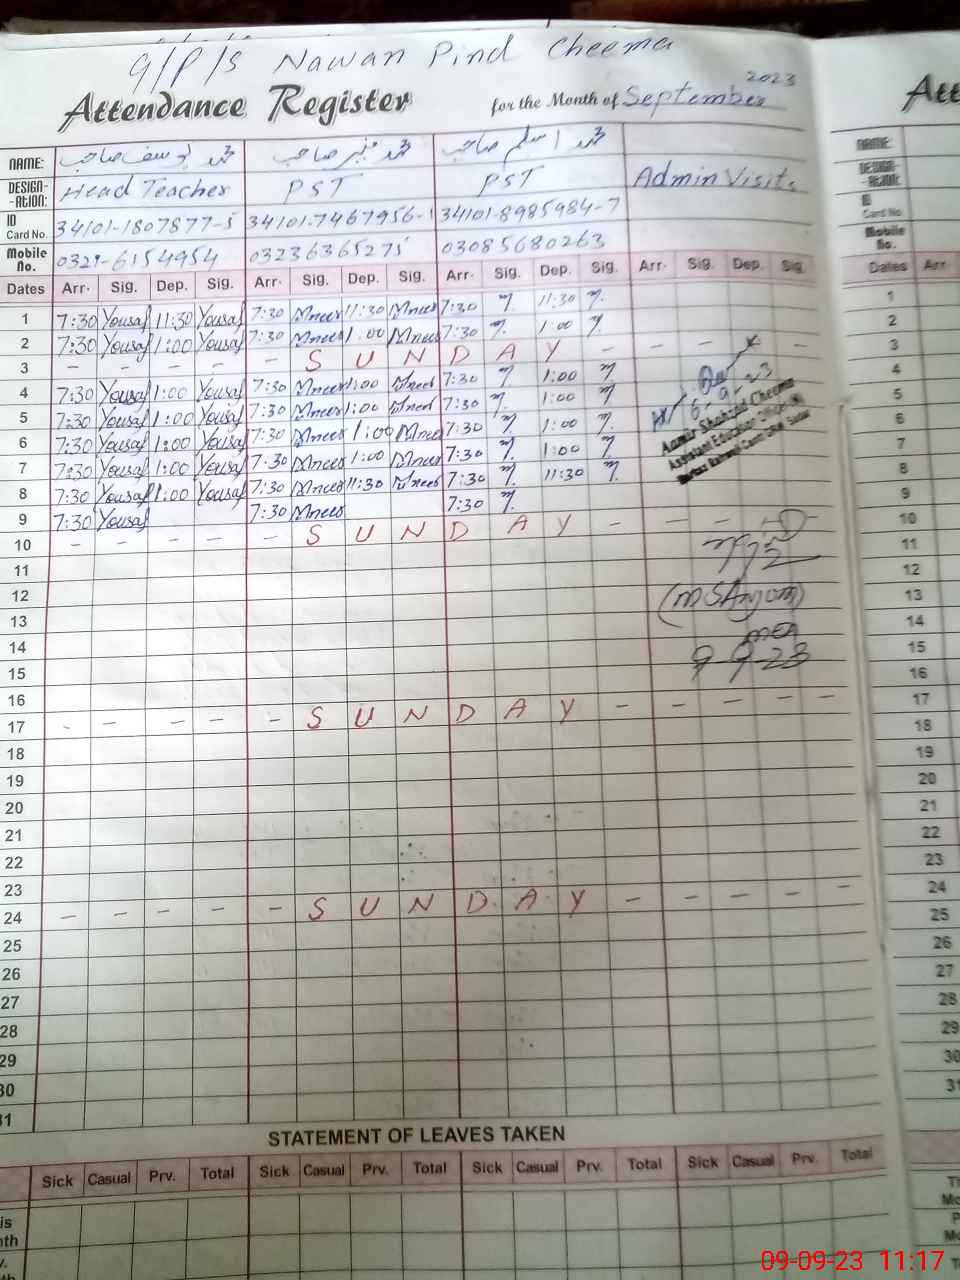 G/P/S Nawan Pind Cheema
2023
Attendance Register for the Month of September
NAME: محمد یوسف صاحب محمد منیر صاحب محمد اسلم صاحب
DESIGN-ATION: Head Teacher PST PST Admin Visits
ID Card No. 34101-1807877-5 34101-7467956-1 34101-8985984-7
Mobile No. 0329-6154954 03236365275 03085680263
Dates Arr. Sig. Dep. Sig. Arr. Sig. Dep. Sig. Arr. Sig. Dep. Sig. Arr. Sig. Dep. Sig.
1 7:30 Yousaf 11:30 Yousaf 7:30 Mneer 11:30 Mneer 7:30 11:30
2 7:30 Yousaf 1:00 Yousaf 7:30 Mneer 1:00 Mneer 7:30 1:00
3 - - - - - S U N D A Y - - -
4 7:30 Yousaf 1:00 Yousaf 7:30 Mneer 1:00 Mneer 7:30 1:00
5 7:30 Yousaf 1:00 Yousaf 7:30 Mneer 1:00 Mneer 7:30 1:00
6 7:30 Yousaf 1:00 Yousaf 7:30 Mneer 1:00 Mneer 7:30 1:00
7 7:30 Yousaf 1:00 Yousaf 7:30 Mneer 1:00 Mneer 7:30 1:00
8 7:30 Yousaf 1:00 Yousaf 7:30 Mneer 11:30 Mneer 7:30 11:30
9 7:30 Yousaf 7:30 Mneer 7:30
6-9-23
Aamir Shahzad Cheema
Assistant Education Officer (M)
10 - - - - - S U N D A Y - - - -
11
12
(M S Anjum)
13
14
MEA
15
9-9-23
16
17 - - - - - S U N D A Y - - - - -
18
19
20
21
22
23
24 - - - - - S U N D A Y - - - - -
25
26
27
28
29
30
31
STATEMENT OF LEAVES TAKEN
Sick Casual Prv. Total Sick Casual Prv. Total Sick Casual Prv. Total Sick Casual Prv. Total
is
nth
v.
Att
NAME:
DESIGN-ATION:
ID Card No.
Mobile No.
Dates Arr
1
2
3
4
5
6
7
8
9
10
11
12
13
14
15
16
17
18
19
20
21
22
23
24
25
26
27
28
29
30
31
Th
Mo
P
Mo
09-09-23 11:17